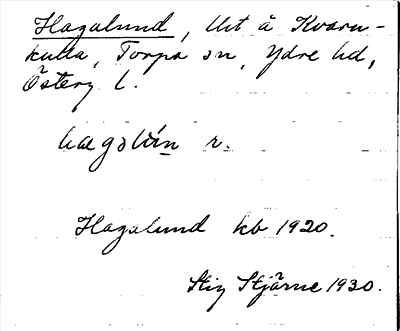 Hagalund, Ut å Kvarn-
kulla, Torpa sn, Ydre hd,
Österg l.
r.
Hagalund kb 1920.
Stig Stjärne 1930.